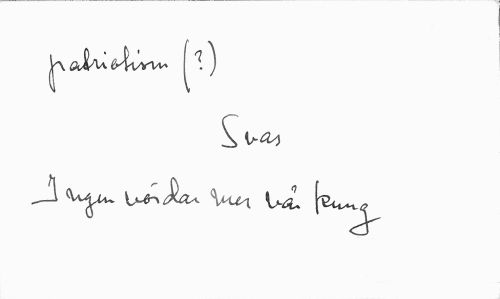 patriotism (?)
Svas
Ingen vördar mer vår kung